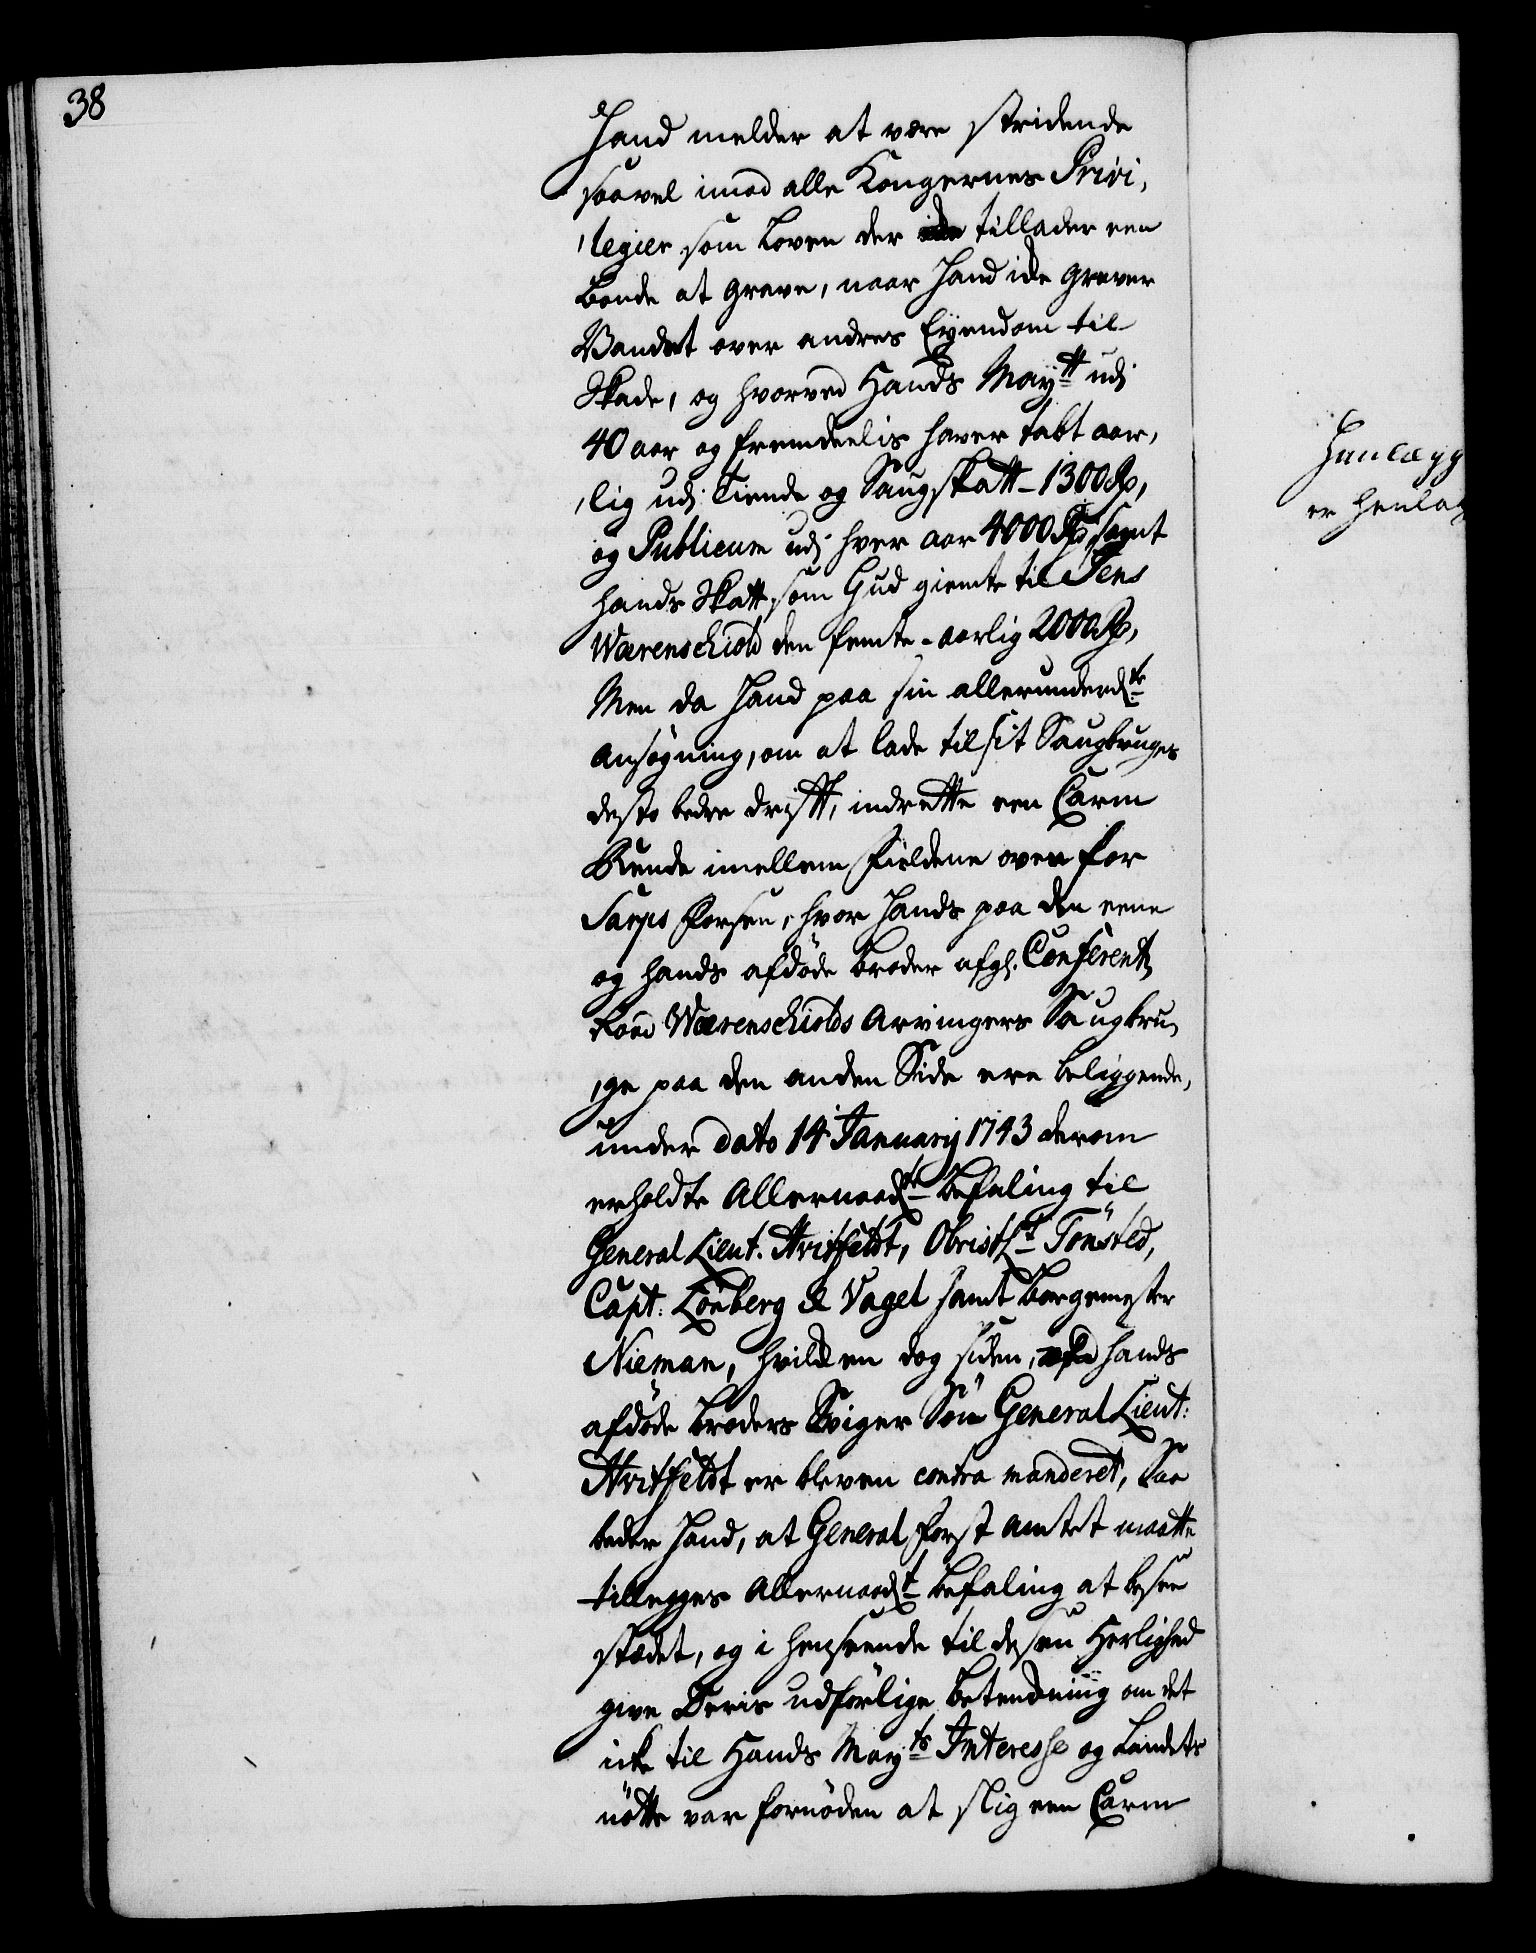 38
Hand melder at være stridende
saavel imod alle Kongernes Privi,
,legier som Loven der tillader een
Bonde at grave, naar Hand icke graver
Vandet over andres Eyendom til
Skade, og hvorved Hands May:tt udj
40 aar og fremdeelis haver tabt aar,
,lig udj Tiende og Saugskatt - 1300 Rd,
og Publicum udj hver aar 4000 Rd, samt
hands Skatt, som Gud giemte til Jens
Wærenschiold den femte - aarlig 2000 Rd,
Men da Hand paa sin allerunderd:te
Ansøgning, om at lade til sit Saugbruges
desto bedre drifft, indrette een Carm
Kunde imellem Fieldene oven for
Sarps Forsen, hvor Hands paa den eene
og hands afdøde broder afg: Conferentz
Raad Wærenschiolds Arvingers Saugbru,
,ge paa den anden Side ere beliggende,
under dato 14 Januarij 1743 derom
erholdte Allernaad:te befaling til
General Lieut. Hvitfeldt, Obrist Lt Tønsted,
Capt: Lønberg & Vagel samt borgemester
Nieman, hvilcken dog siden, hands
afdøde broders Sviger Søn General Lieut:
Hvitfeldt er bleven contra manderet, Saa
beder Hand, at General Forst Amtet maatte
tillegges Allernaad:t befaling at besee
stædet, og i henseende til dessen Herlighed
give Deris udførlige betenckning om det
icke til Hands May:ts Interesse og Landets
nøtte var fornøden at slig een Carm
Henlægg
er henlag